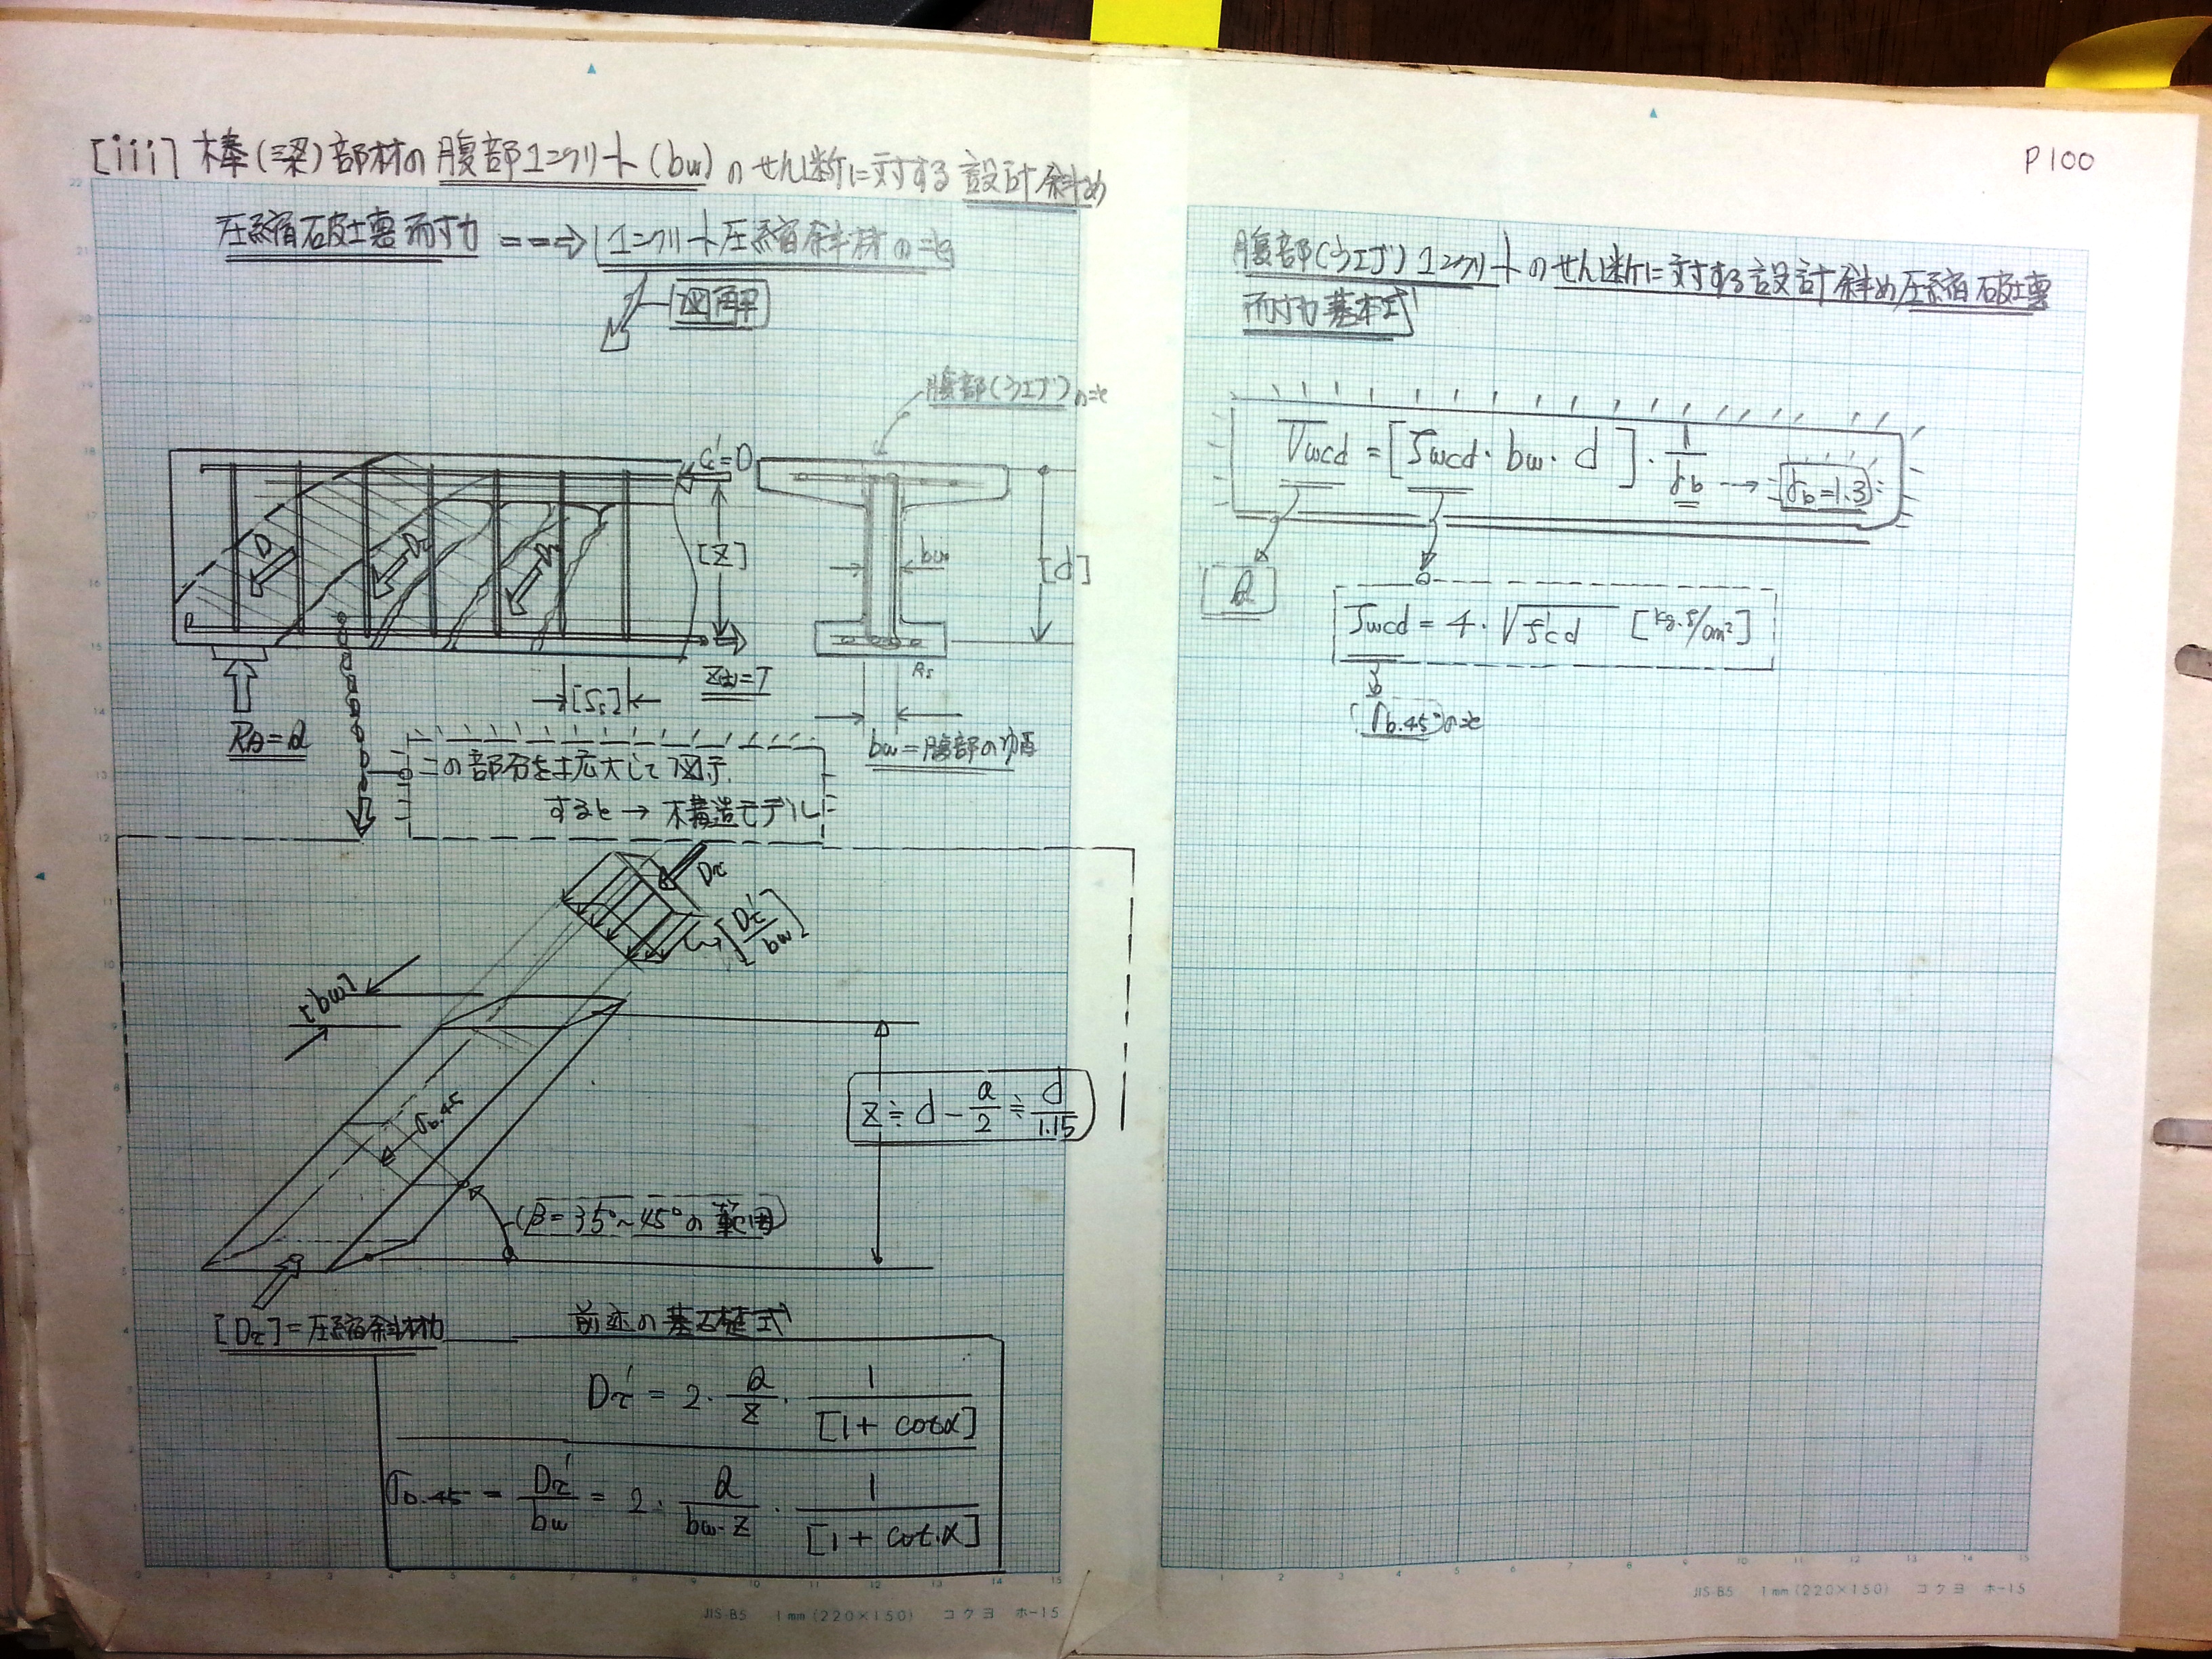 P100
[iii] 棒(梁)部材の腹部コンクリート(bw)のせん断に対する設計斜め
圧縮破壊耐力 ==⇒ コンクリート圧縮斜材のこと
図解
腹部(ウエブ)のこと
Cc'=D
D
Dτ
Dτ
[z]
bw
[d]
Z(s)=T
As
[Ss]
RA=Q
bw=腹部のゆ幅
この部分を拡大して図示
すると → 本構造モデル
Dτ
[Dτ'/bw]
[bw]
σb.45
z≒d-a/2≒d/1.15
(β=35°~45°の範囲)
[Dτ]=圧縮斜材力
前述の基礎式
Dτ' = 2・Q/z・1/[1+cotα]
σb.45 = Dτ'/bw = 2・Q/bw・z・1/[1+cot.α]
腹部(ウエブ)コンクリートのせん断に対する設計斜め圧縮破壊
耐力基本式
Vwcd = [fwcd・bw・d]・1/γb → γb=1.3
Q
fwcd = 4・√f'cd [kg・f/cm²]
(σb.45)のこと
JIS-B5 1mm(220×150) コクヨ ホ-15
JIS-B5 1mm(220×150) コクヨ ホ-15